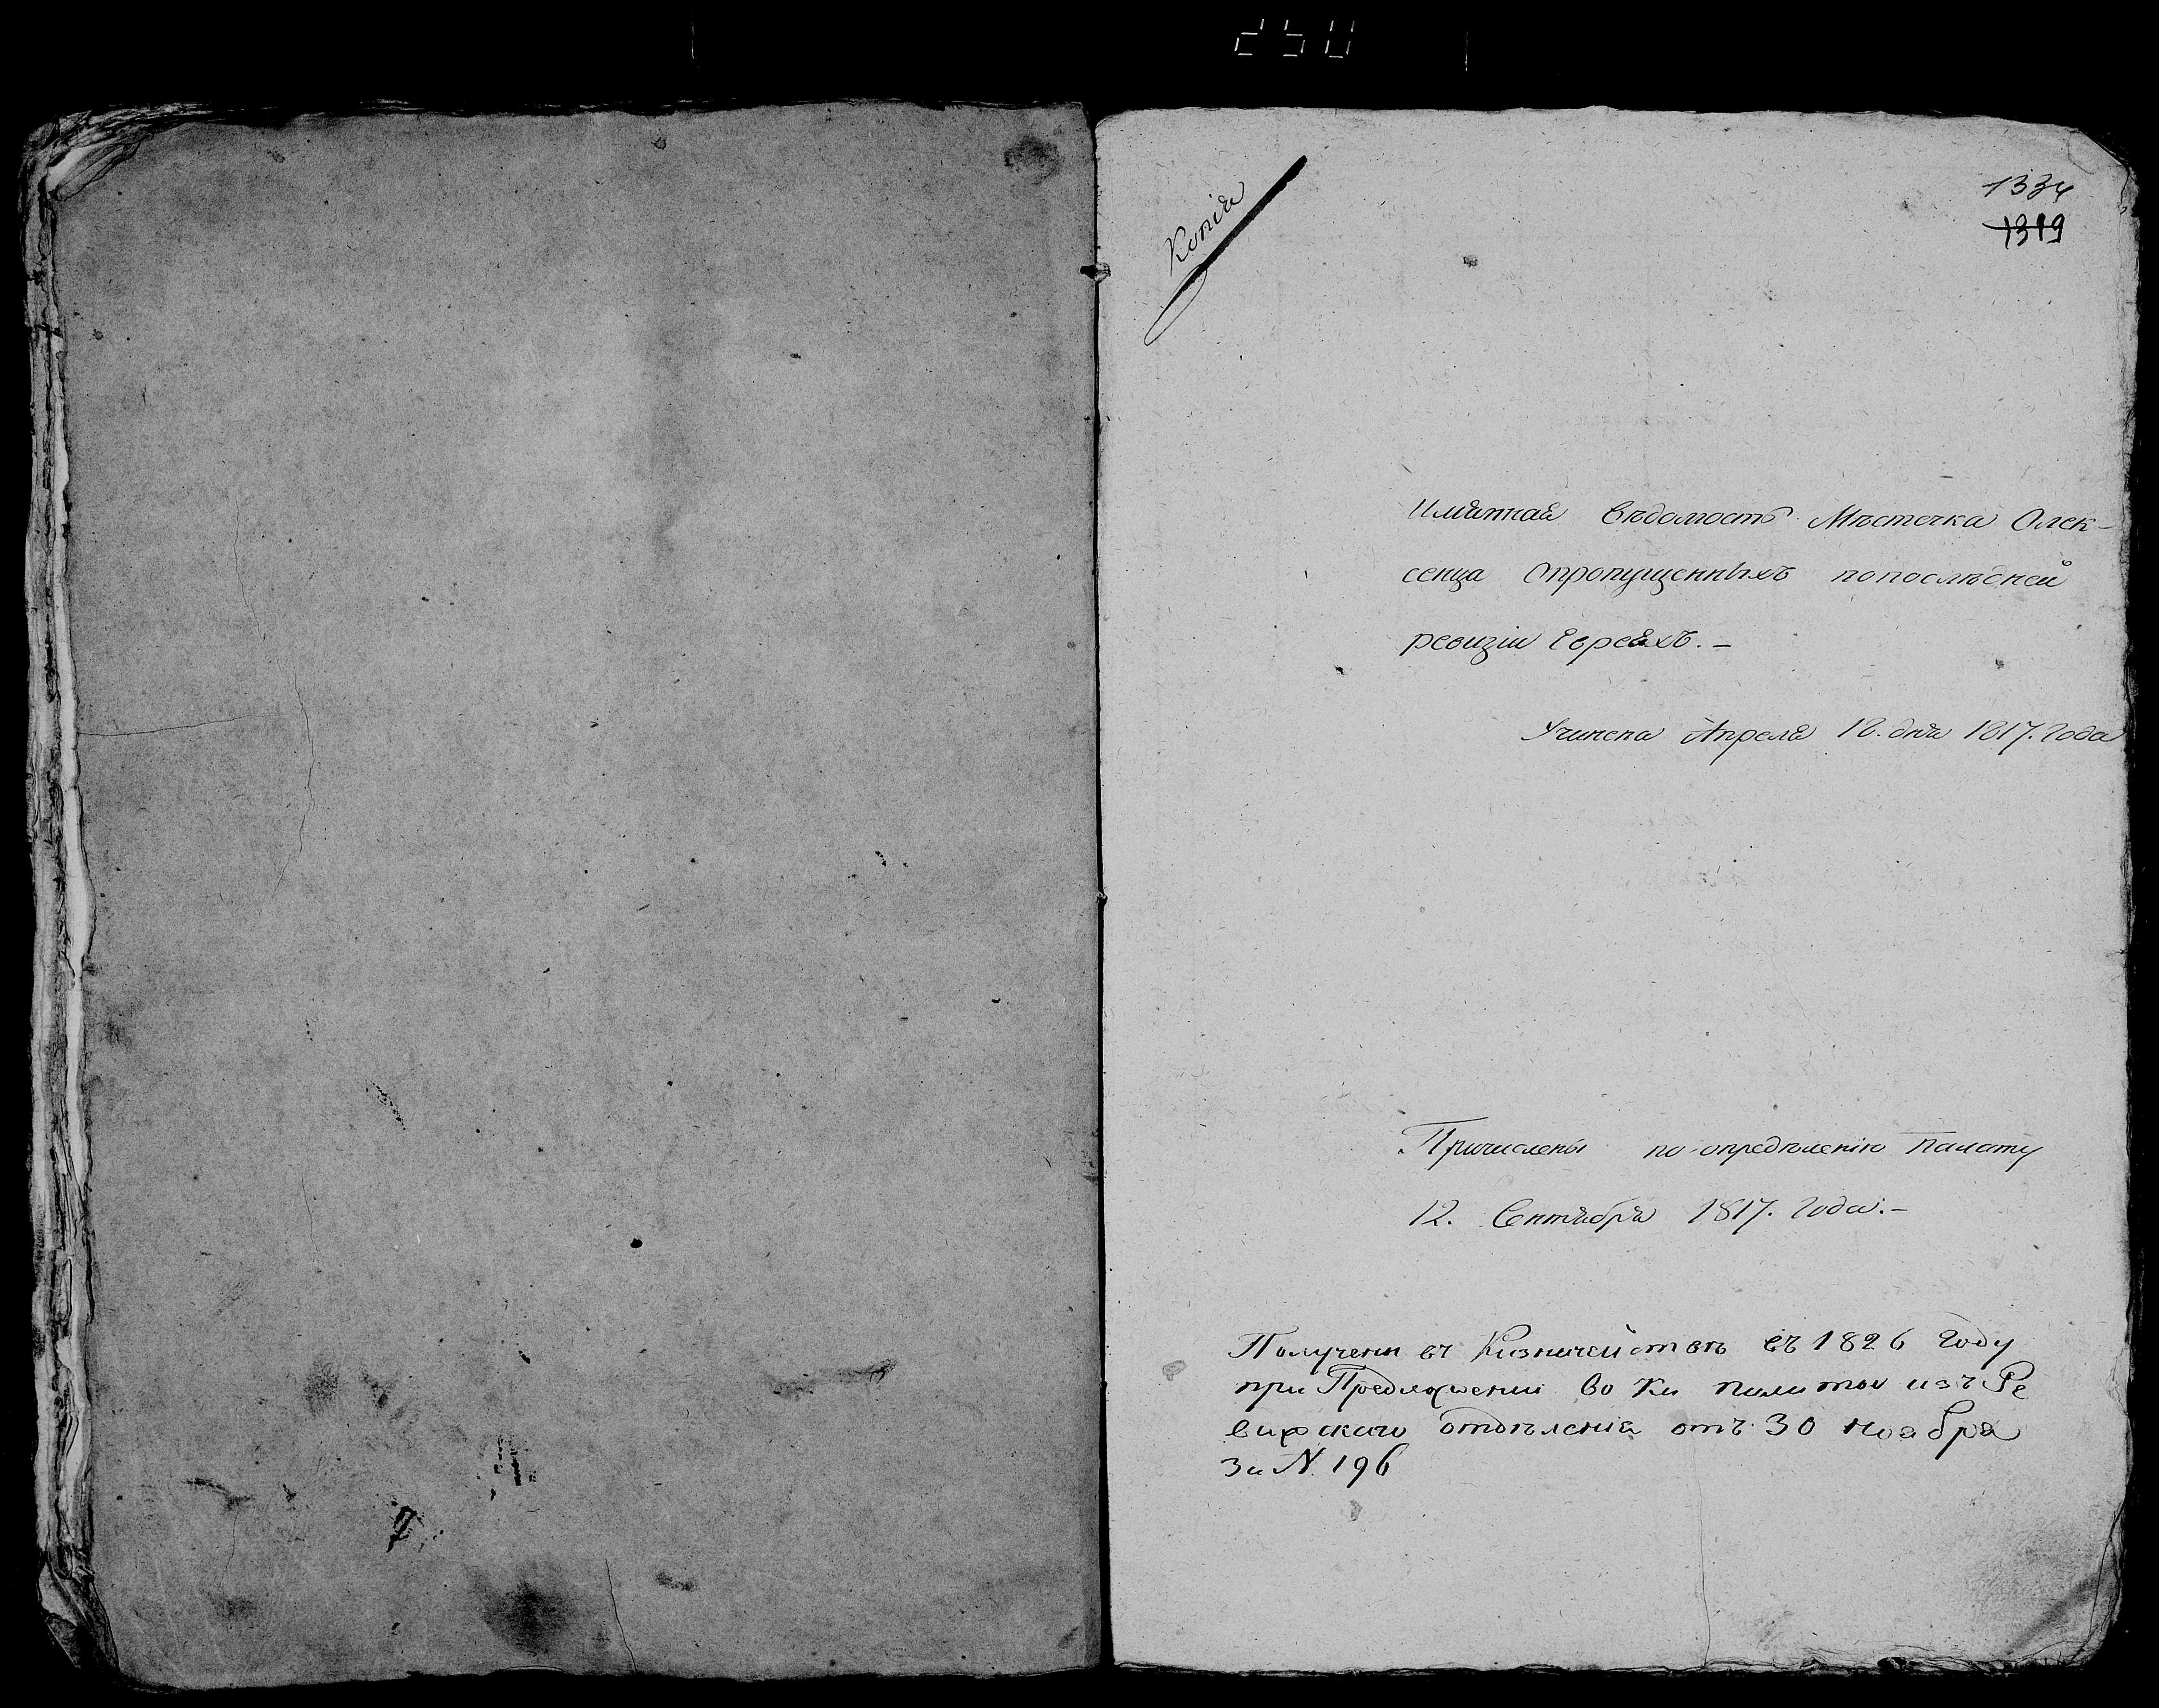 250
1334
1319
Копія
Имянная вѣдомость Мѣстечка Олек-
сенца Опропущенныхъ попослѣдней
ревизіи Евреяхъ. –
Учинена Апреля 18. дня 1817. Года
Причислены по опредѣленію Палаты
12. Сентября 1817. Года. –
Получены въ Казначействѣ въ 1826 Году
при Предложении Во Ка палаты изъ Ре
вижскаго отдѣленія отъ 30 ноября
За N. 196